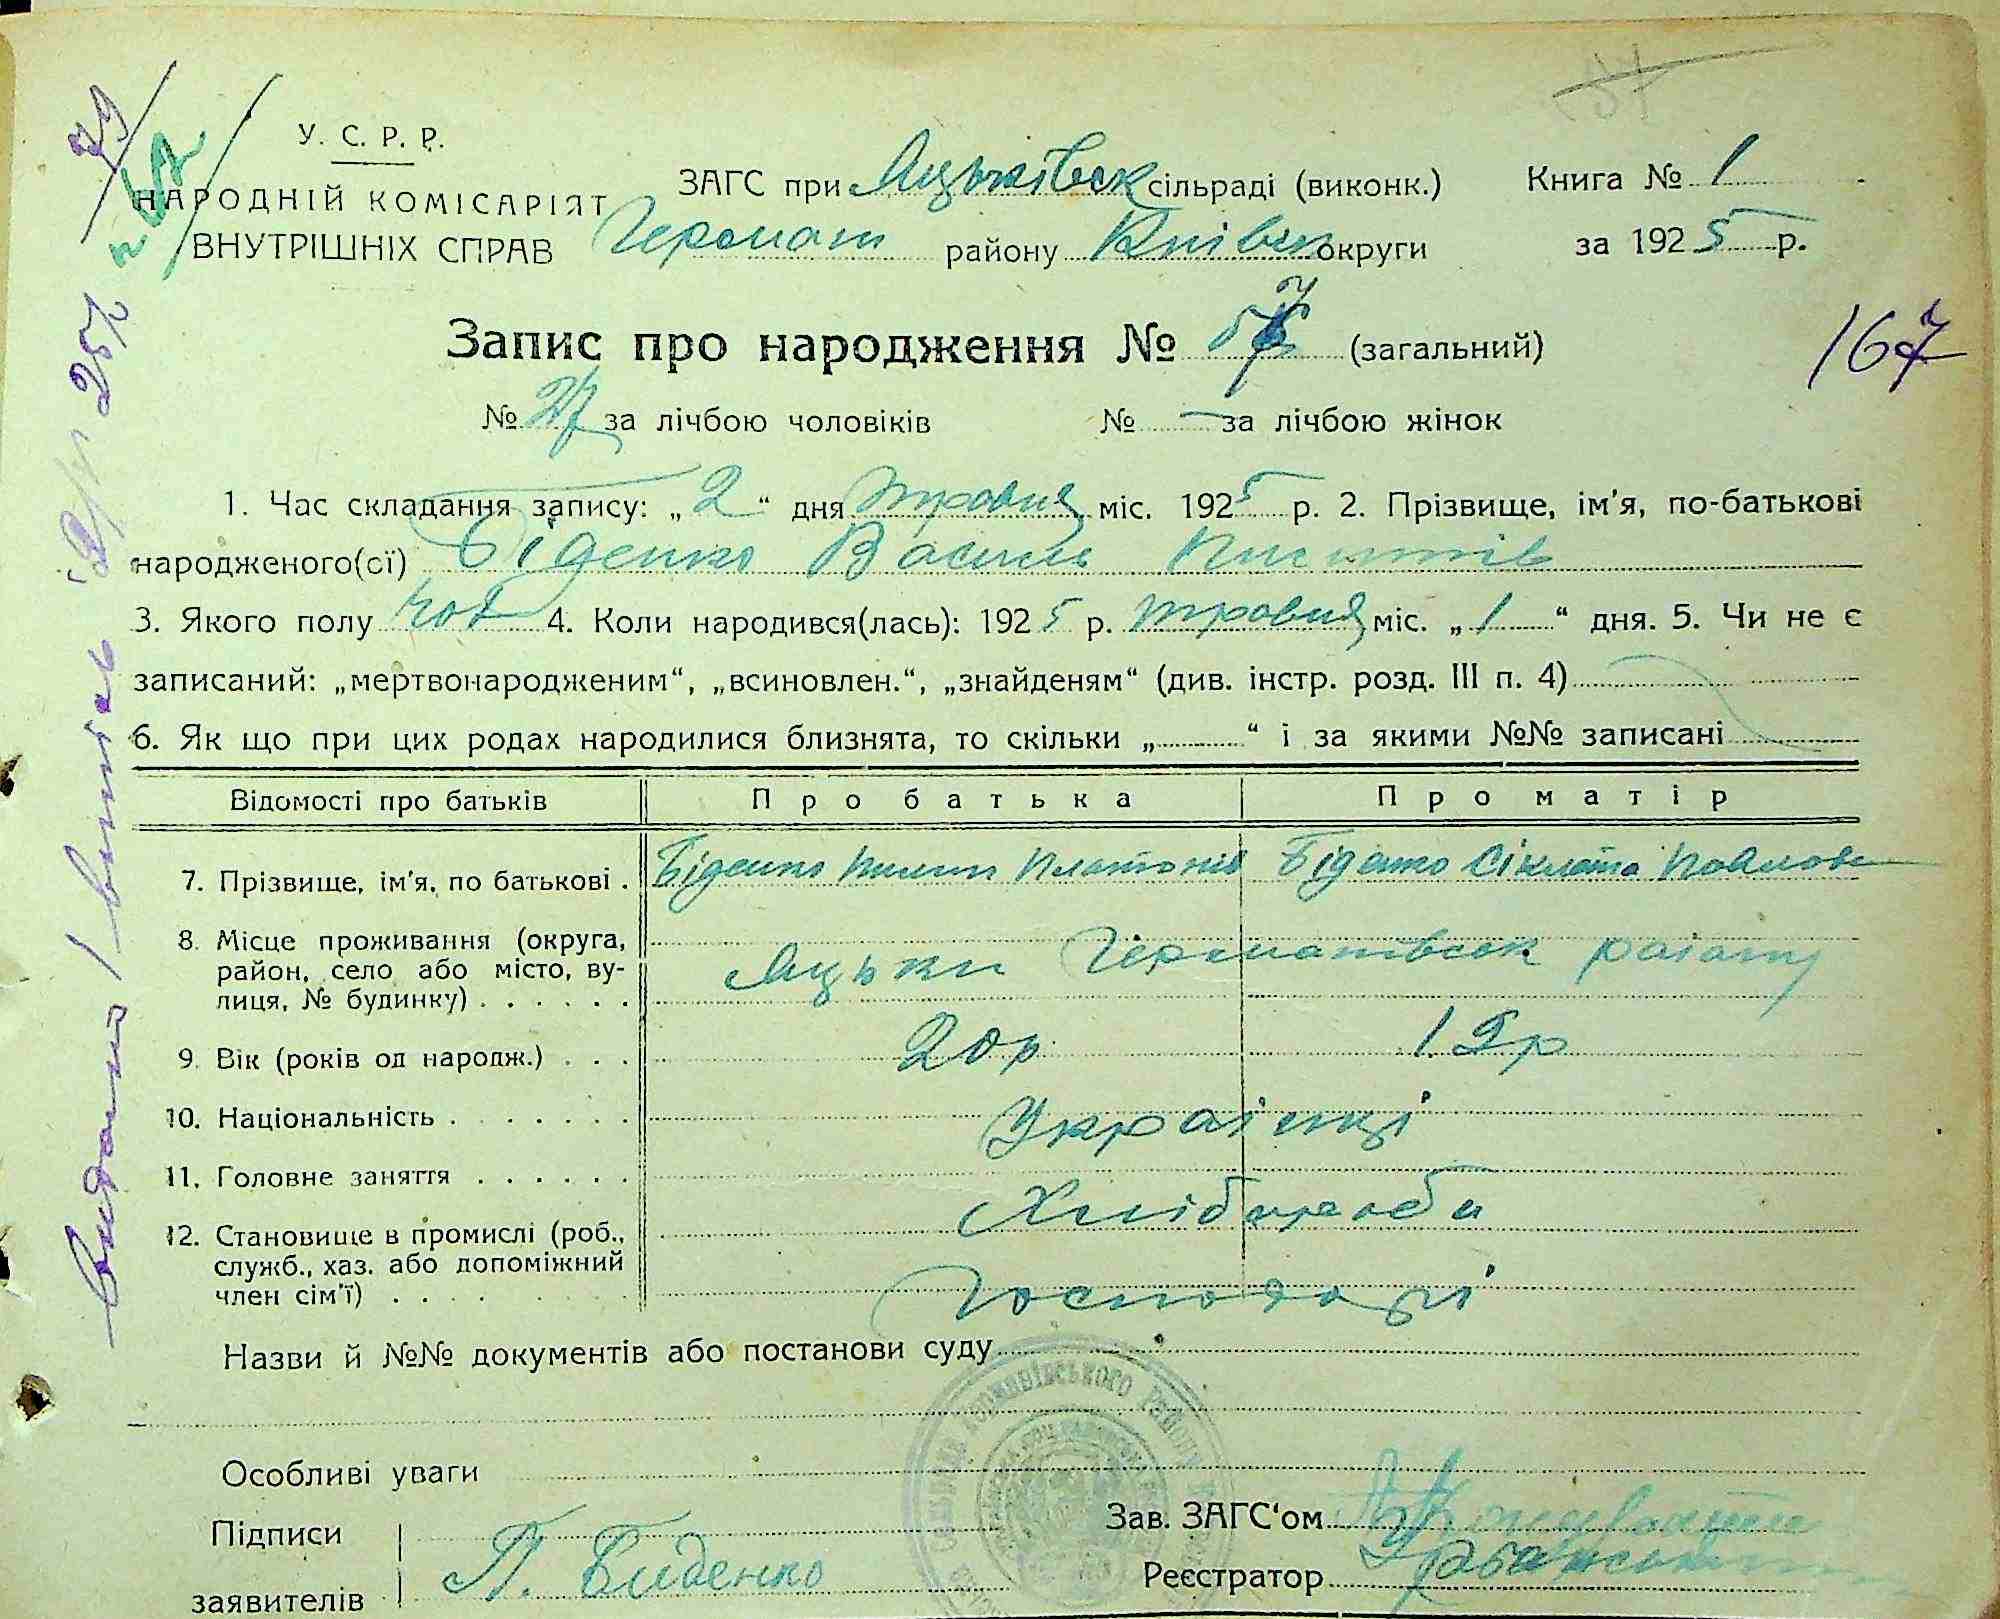 У. С. Р. Р.
НАРОДНІЙ КОМІСАРІЯТ
ВНУТРІШНІХ СПРАВ
ЗАГС при Яцьківськ сільраді (виконк.) Книга № 1
Германі району Київськ округи за 1925 р.
Запис про народження № 57 (загальний)
167
№ 27 за лічбою чоловіків № — за лічбою жінок
1. Час складання запису: „2“ дня травня міс. 1925 р. 2. Прізвище, ім'я, по-батькові
народженого(сї) Біденко Василь
3. Якого полу чол 4. Коли народився(лась): 1925 р. травня міс. „1“ дня. 5. Чи не є
записаний: „мертвонародженим“, „всиновлен.“, „знайденям“ (див. інстр. розд. III п. 4)
6. Як що при цих родах народилися близнята, то скільки „ “ і за якими №№ записані
Відомості про батьків Про батька Про матір
7. Прізвище, ім'я, по батькові . Біденко Пилип Платонів Біденко Сіклета Павлов
8. Місце проживання (округа,
район, село або місто, ву-
лиця, № будинку) . . . . . . Яцьки Германівськ району
9. Вік (років од народж.) . . . 20 р 19 р
10. Національність . . . . . . . Українці
11. Головне заняття . . . . . . Хлібороби
12. Становище в промислі (роб.,
служб., хаз. або допоміжний
член сім'ї) . . . . Господарі
Назви й №№ документів або постанови суду
Особливі уваги
Підписи
заявителів П. Биденко
Зав. ЗАГС‘ом
Реєстратор